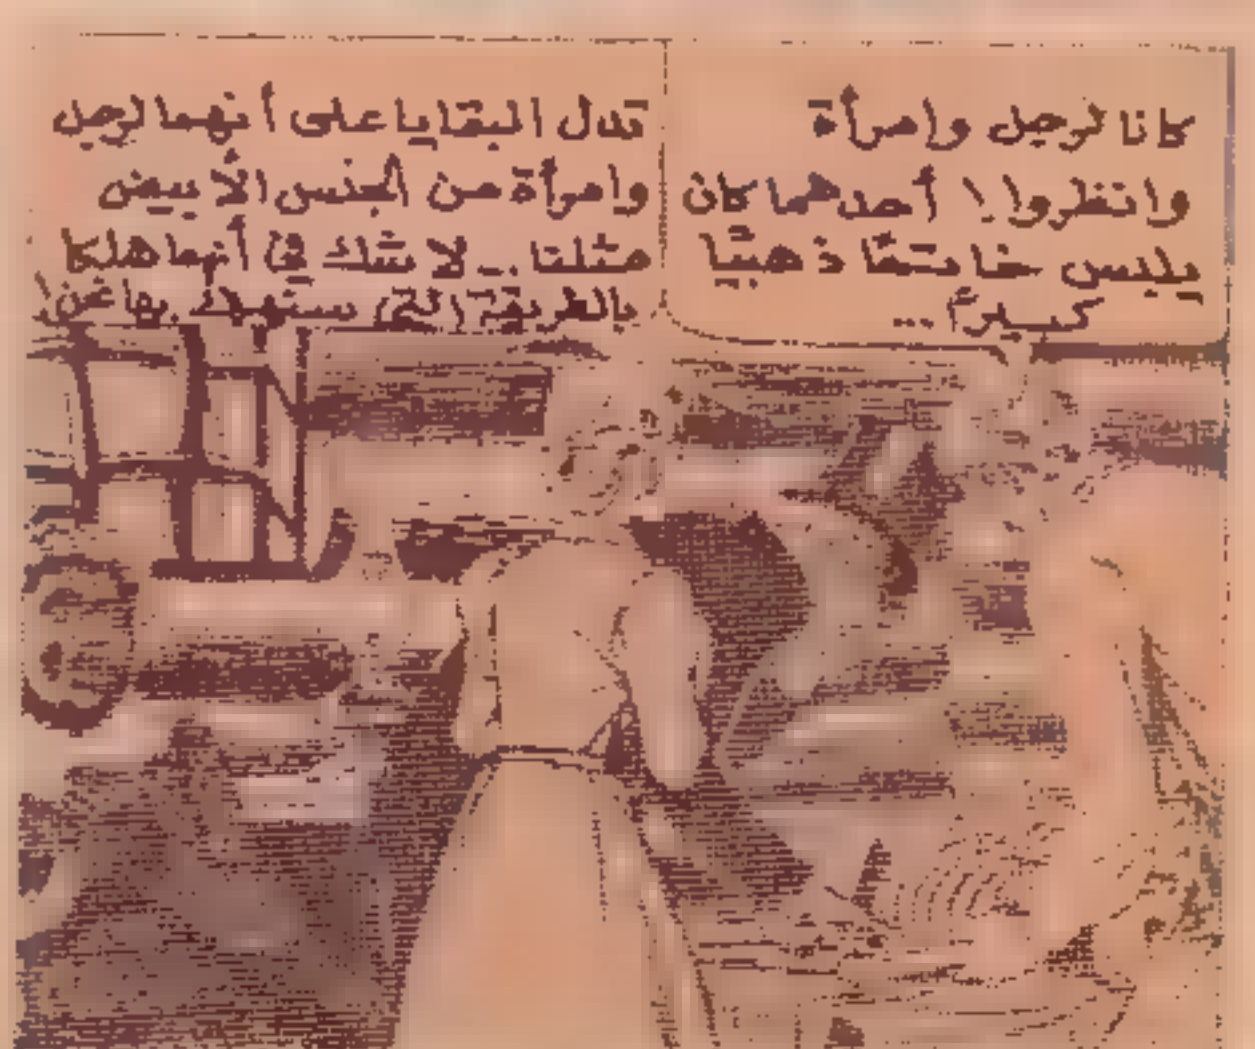 كانا لرجل وامرأة
وانظروا! أحدهما كان
يلبس خاتمًا ذهبيًا
كبيرًا ...
تدل البقايا على أنهما لرجل
وامرأة من الجنس الأبيض
مثلنا .. لا شك في أنهما هلكا
بالطريقة التي سنهلك بها نحن!